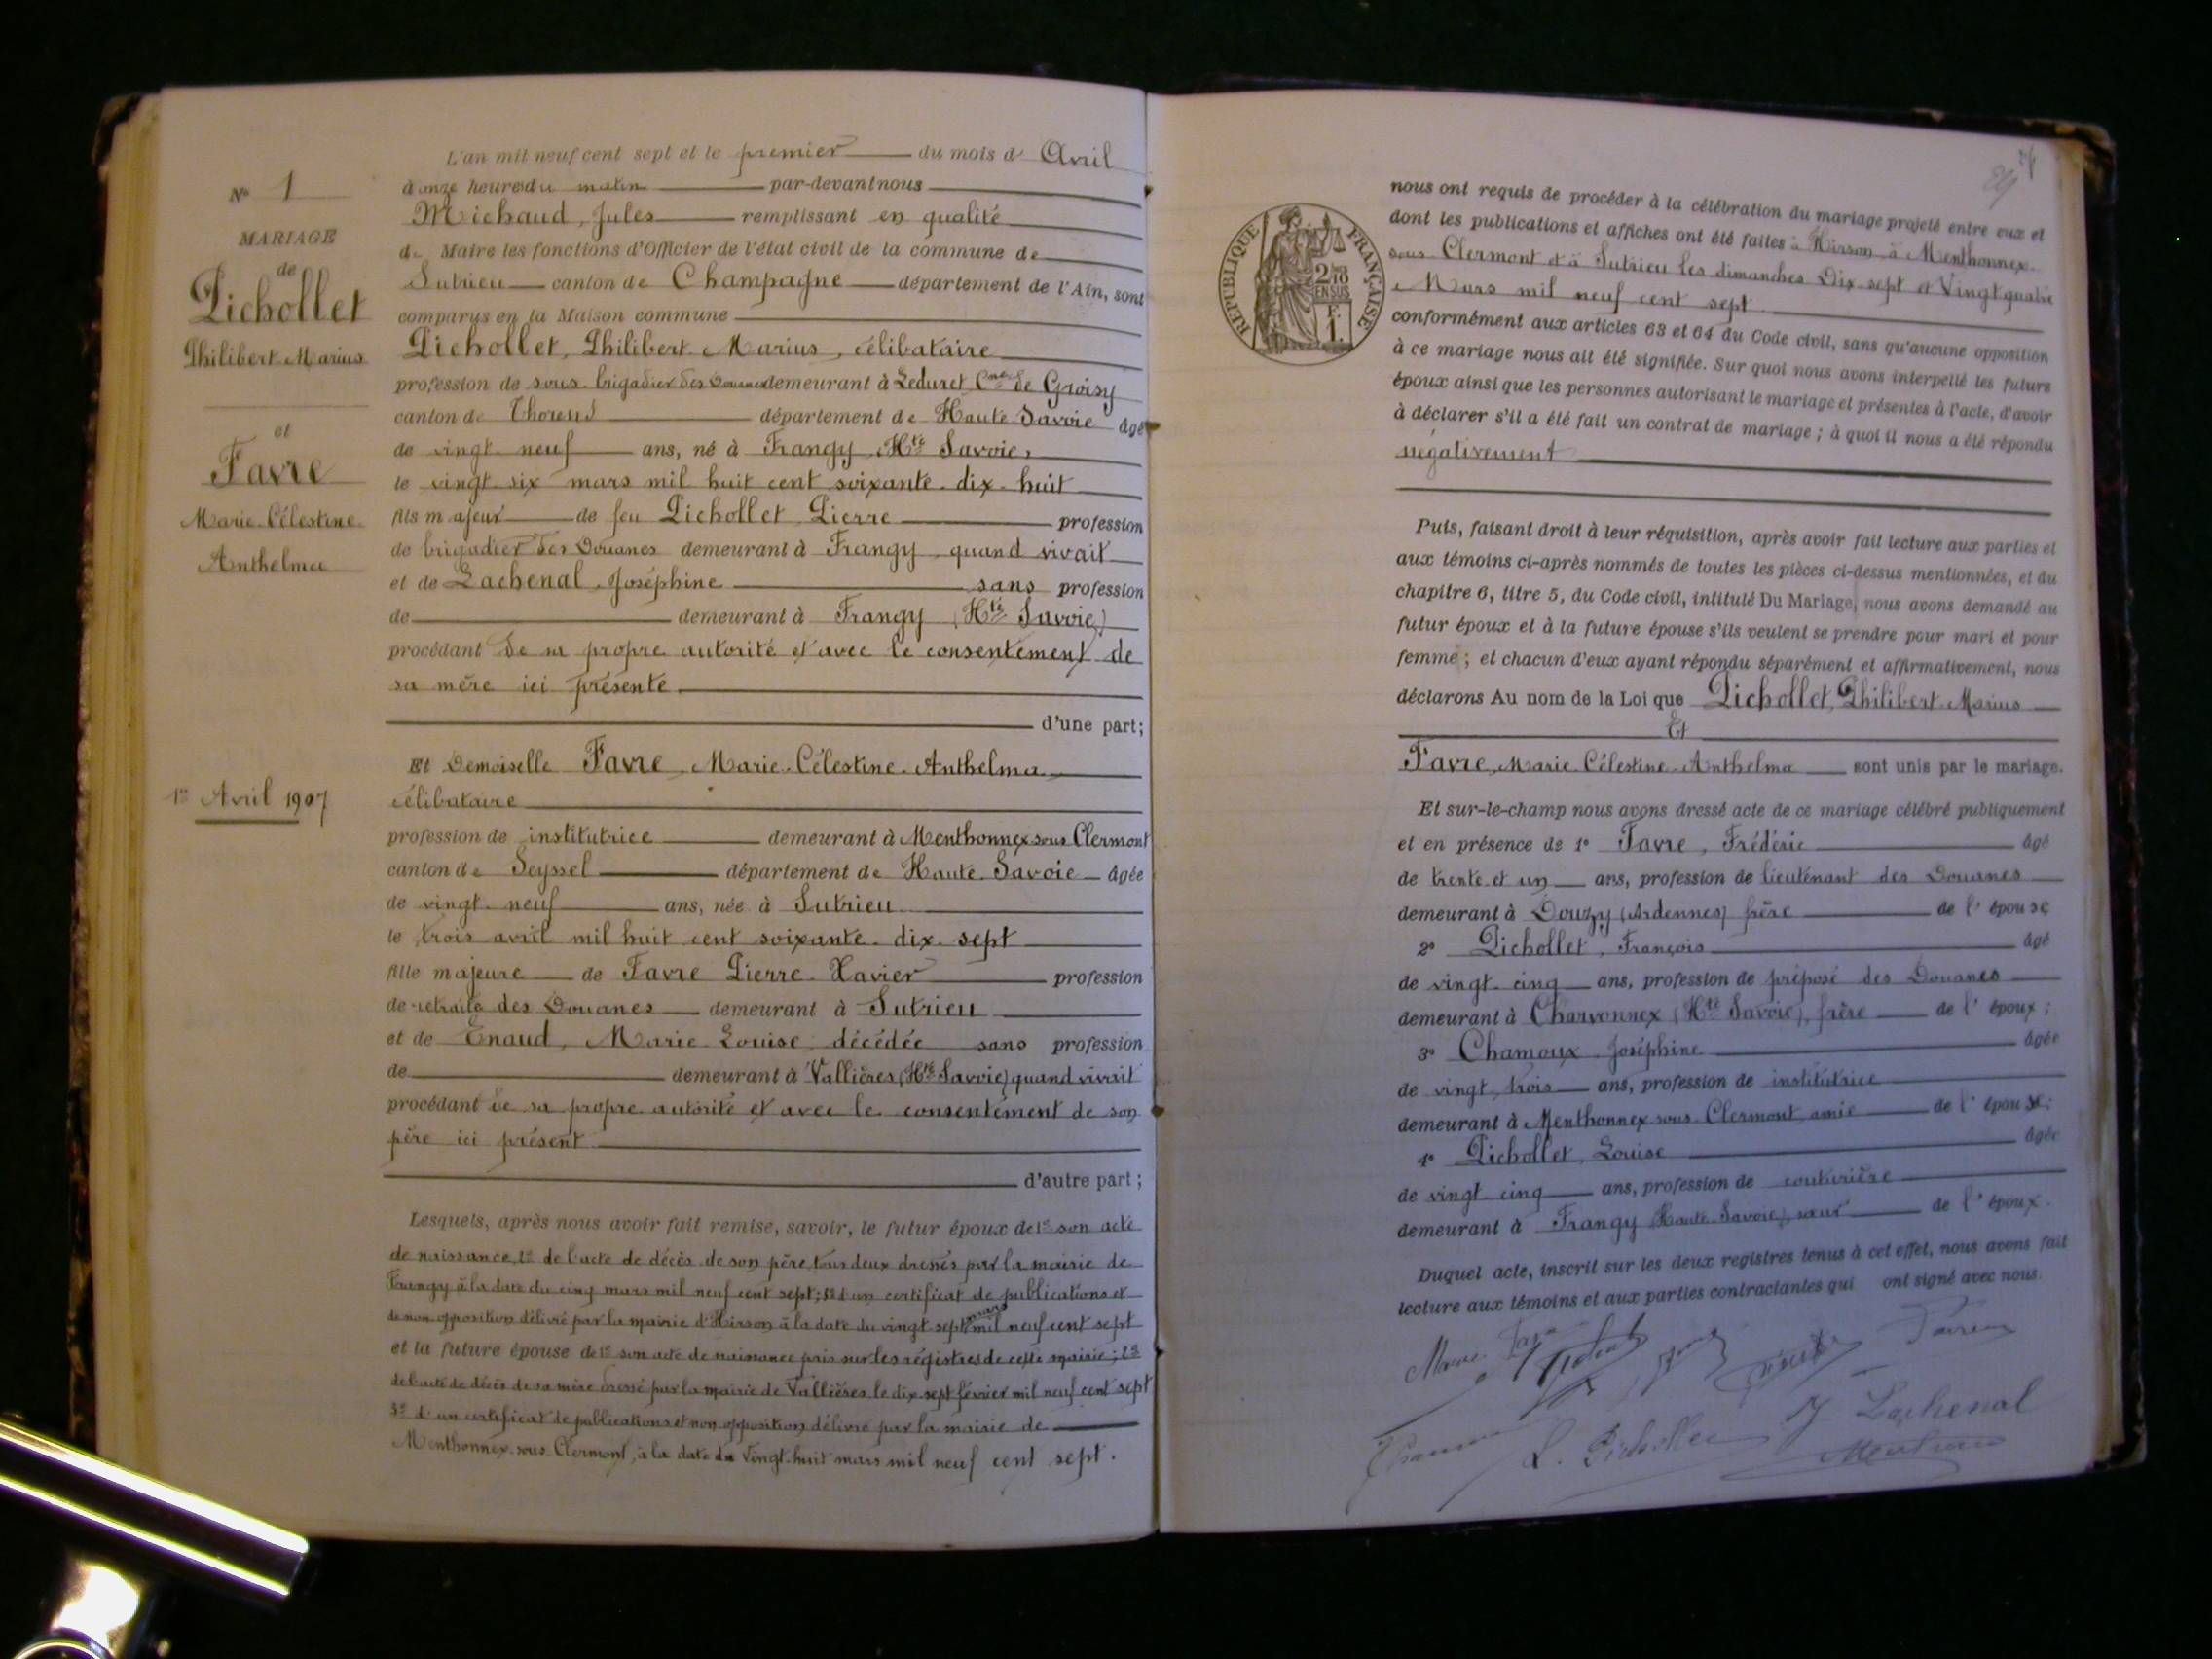 N° 1
MARIAGE
de
Pichollet
Philibert Marius
et
Favre
Marie Célestine
Anthelma
1er Avril 1907
L'an mil neuf cent sept et le premier du mois d' Avril
à onze heures du matin par-devant nous
Michaud, Jules remplissant en qualité
de Maire les fonctions d'Officier de l'état civil de la commune de
Sutrieu canton de Champagne département de l'Ain, sont
comparus en la Maison commune
Pichollet, Philibert Marius, célibataire
profession de sous-brigadier des Douanes demeurant à Leduret Cne de Groisy
canton de Thorens département de Haute Savoie âgé
de vingt-neuf ans, né à Frangy, Hte Savoie,
le vingt six mars mil huit cent soixante-dix-huit
fils majeur de feu Pichollet Pierre profession
de brigadier des Douanes demeurant à Frangy, quand vivait
et de Lachenal Joséphine sans profession
de demeurant à Frangy (Hte Savoie)
procédant de sa propre autorité et avec le consentement de
sa mère ici présente
d'une part;
Et Demoiselle Favre, Marie-Célestine-Anthelma
célibataire
profession de institutrice demeurant à Menthonnex sous Clermont
canton de Seyssel département de Haute-Savoie âgée
de vingt-neuf ans, née à Sutrieu
le trois avril mil huit cent soixante-dix-sept
fille majeure de Favre Pierre Xavier profession
de retraité des Douanes demeurant à Sutrieu
et de Enaud, Marie Louise décédée sans profession
de demeurant à Vallières (Hte Savoie) quand vivait
procédant de sa propre autorité et avec le consentement de son
père ici présent
d'autre part;
Lesquels, après nous avoir fait remise, savoir, le futur époux de 1° son acte
de naissance, 2° de l'acte de décès de son père, tous deux dressés par la mairie de
Frangy à la date du cinq mars mil neuf cent sept; 3° d'un certificat de publications et
de non opposition délivré par la mairie d'Hirson à la date du vingt sept mars mil neuf cent sept
et la future épouse de 1° son acte de naissance pris sur les régistres de cette mairie; 2°
de l'acte de décès de sa mère dressé par la mairie de Vallières le dix-sept février mil neuf cent sept
3° d'un certificat de publications et non opposition délivré par la mairie de
Menthonnex-sous-Clermont, à la date du Vingt-huit mars mil neuf cent sept.
RÉPUBLIQUE FRANÇAISE
2/10
EN SUS
F.
1.
nous ont requis de procéder à la célébration du mariage projeté entre eux et
dont les publications et affiches ont été faites à Hirson, à Menthonnex
sous Clermont et à Sutrieu les dimanches Dix-sept et Vingt quatre
Mars mil neuf cent sept
conformément aux articles 63 et 64 du Code civil, sans qu'aucune opposition
à ce mariage nous ait été signifiée. Sur quoi nous avons interpellé les futurs
époux ainsi que les personnes autorisant le mariage et présentes à l'acte, d'avoir
à déclarer s'il a été fait un contrat de mariage; à quoi il nous a été répondu
négativement
Puis, faisant droit à leur réquisition, après avoir fait lecture aux parties et
aux témoins ci-après nommés de toutes les pièces ci-dessus mentionnées, et du
chapitre 6, titre 5, du Code civil, intitulé Du Mariage, nous avons demandé au
futur époux et à la future épouse s'ils veulent se prendre pour mari et pour
femme; et chacun d'eux ayant répondu séparément et affirmativement, nous
déclarons Au nom de la Loi que Pichollet, Philibert Marius
Et
Favre, Marie Célestine Anthelma sont unis par le mariage.
Et sur-le-champ nous avons dressé acte de ce mariage célébré publiquement
et en présence de 1° Favre, Frédéric âgé
de trente et un ans, profession de lieutenant des Douanes
demeurant à Douzy (Ardennes) frère de l'épouse
2° Pichollet, François âgé
de vingt-cinq ans, profession de préposé des Douanes
demeurant à Charvonnex (Hte Savoie), frère de l'époux;
3° Chamoux Joséphine âgée
de vingt trois ans, profession de institutrice
demeurant à Menthonnex sous Clermont amie de l'épouse;
4° Pichollet, Louise âgée
de vingt cinq ans, profession de couturière
demeurant à Frangy (Haute-Savoie), sœur de l'époux.
Duquel acte, inscrit sur les deux registres tenus à cet effet, nous avons fait
lecture aux témoins et aux parties contractantes qui ont signé avec nous.
L. Pichollet J Lachenal